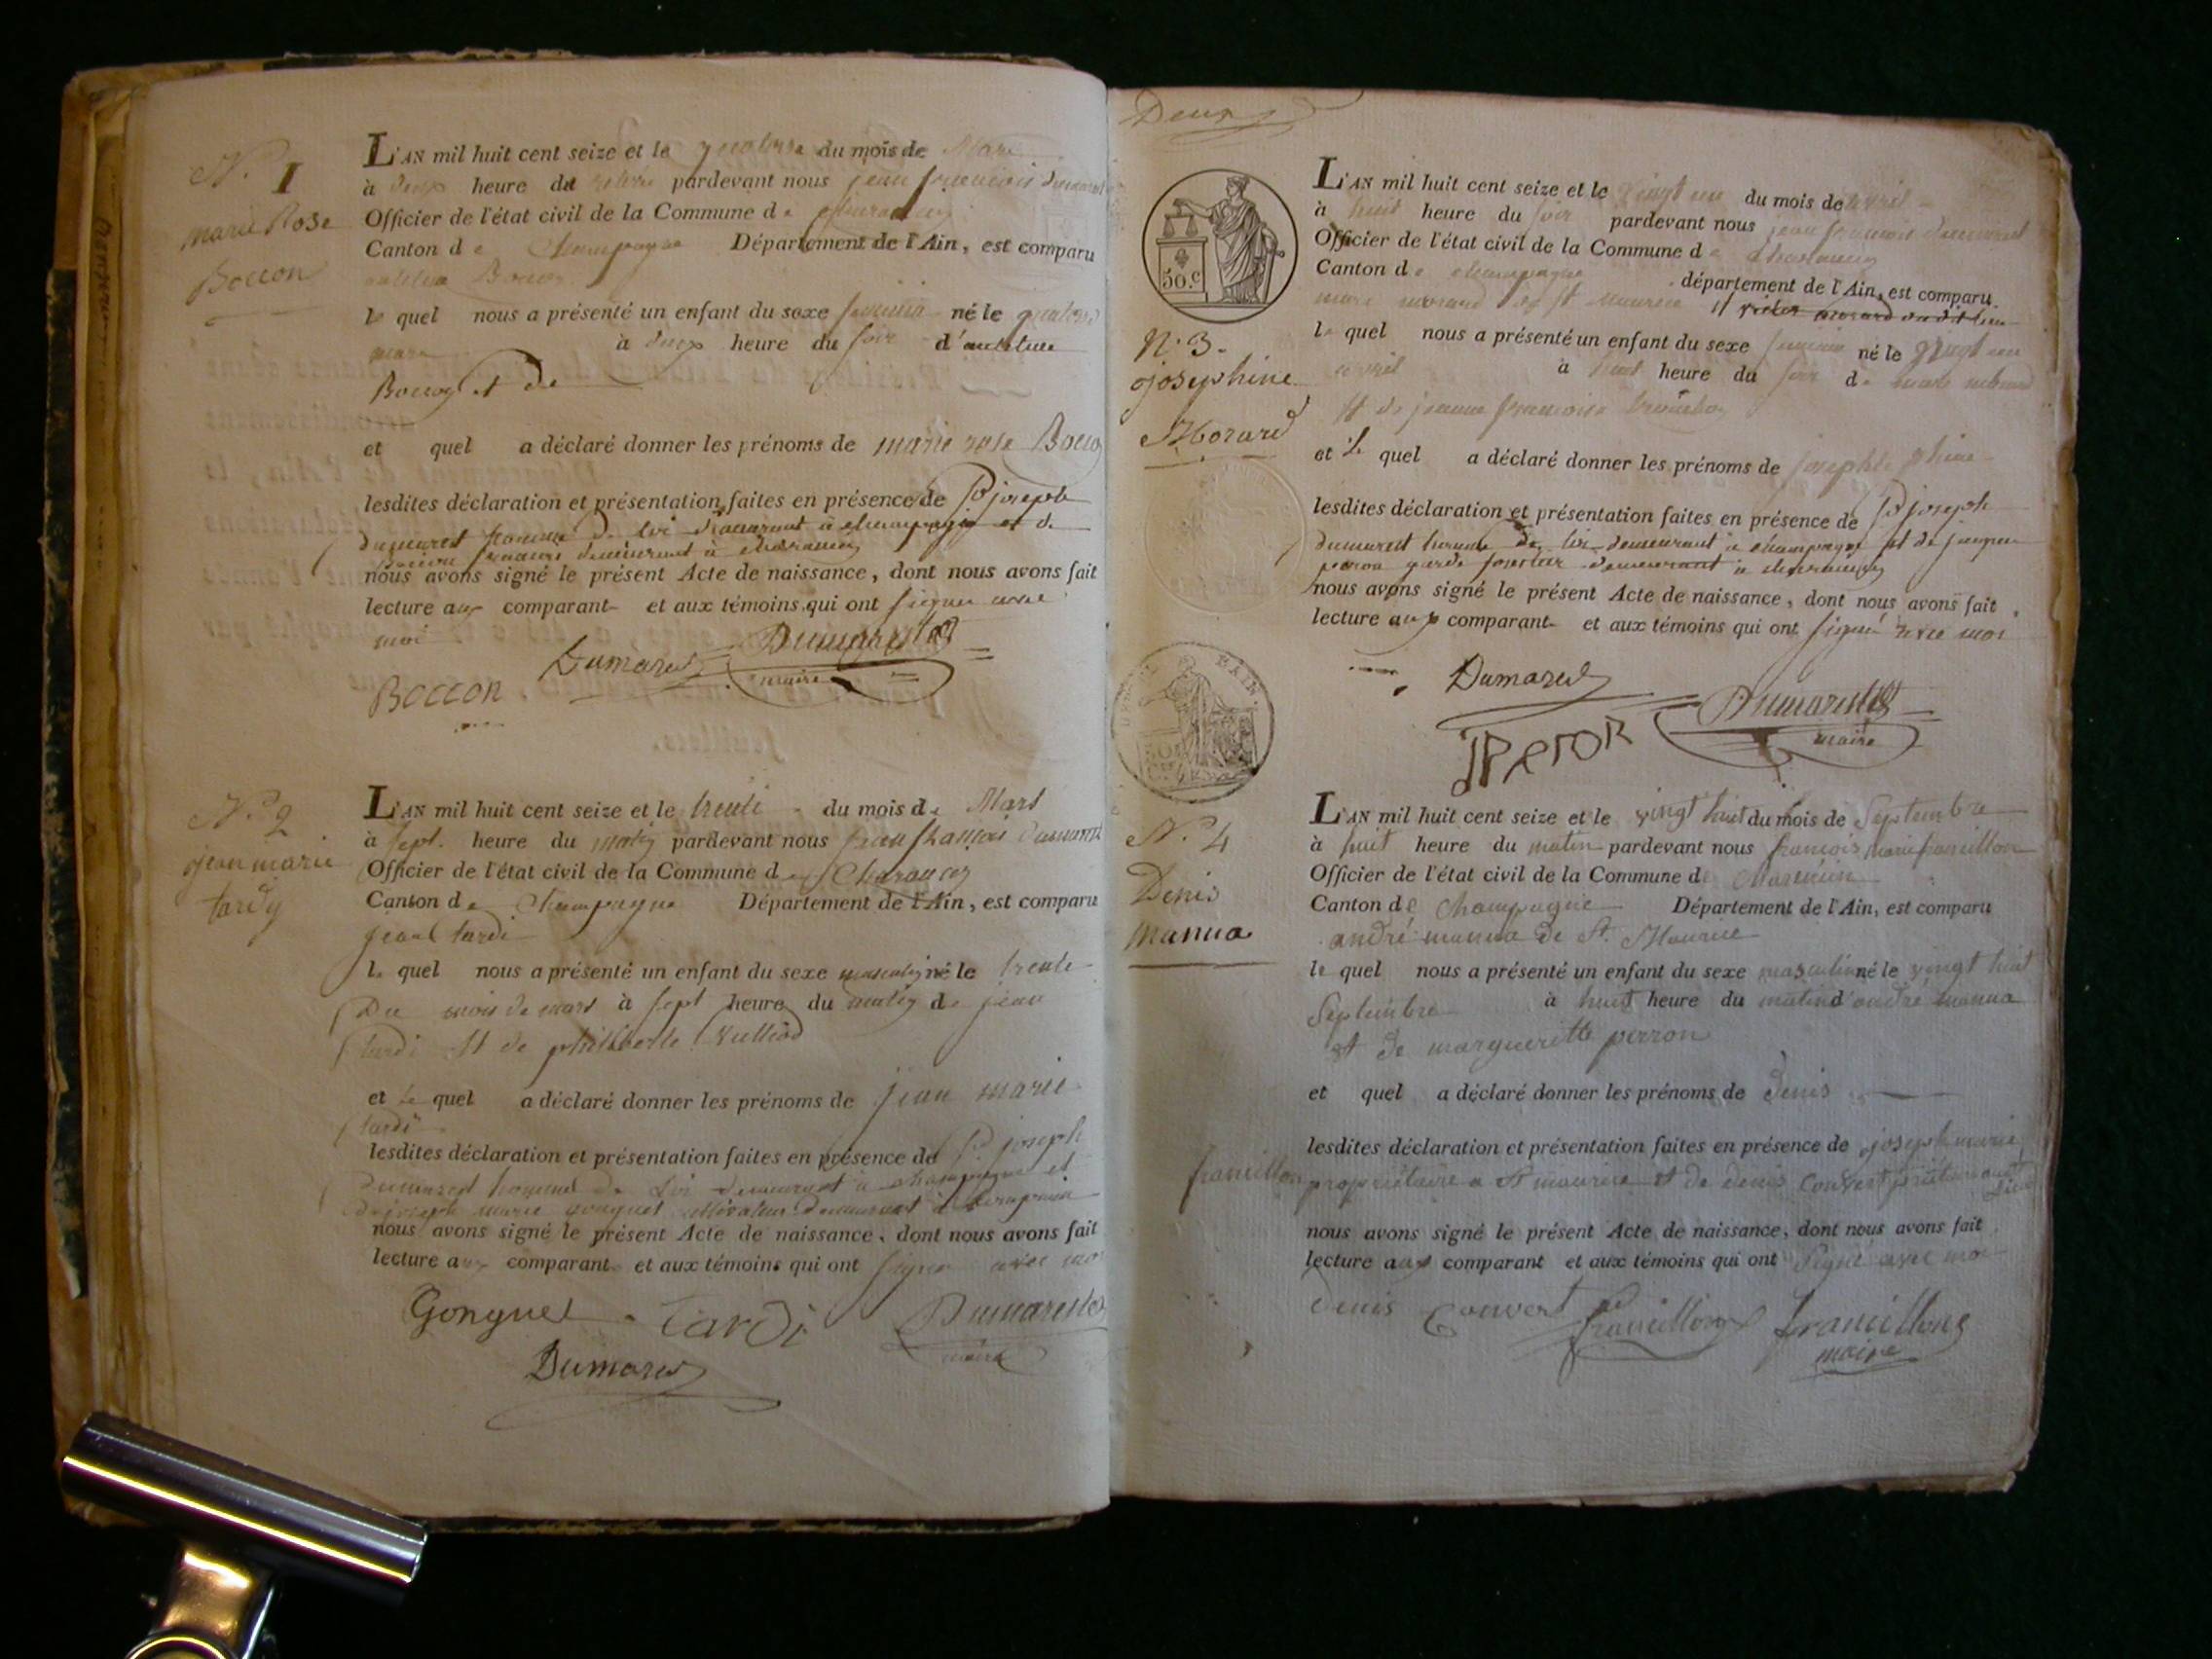 N.o 1
marie Rose
Boccon
L'AN mil huit cent seize et le quatorze du mois de Mars
à deux heure du pardevant nous jean françois dumarest
Officier de l'état civil de la Commune de charancin
Canton de Champagne Département de l'Ain, est comparu
le quel nous a présenté un enfant du sexe feminin né le quatorze
mars à deux heure du soir d'anthelme
et de
et quel a déclaré donner les prénoms de marie rose
lesdites déclaration et présentation faites en présence de joseph
dumarest homme de loi demeurant à champagne et de
demeurant à charancin
nous avons signé le présent Acte de naissance, dont nous avons fait
lecture aux comparant et aux témoins qui ont signer avec
moi
Dumarest Dumarest
maire
Boccon
N.o 2
jean marie
tardy
L'AN mil huit cent seize et le trente du mois de Mars
à sept heure du matin pardevant nous jean françois dumarest
Officier de l'état civil de la Commune de Charancin
Canton de Champagne Département de l'Ain, est comparu
jean tardi
le quel nous a présenté un enfant du sexe masculin né le trente
Du mois de mars à sept heure du matin de jean
tardi et de philiberte vulliod
et le quel a déclaré donner les prénoms de jean marie
tardi
lesdites déclaration et présentation faites en présence de joseph
dumarest homme de loi demeurant à champagne et
de joseph marie gonguet cultivateur demeurant à
nous avons signé le présent Acte de naissance, dont nous avons fait
lecture aux comparant et aux témoins qui ont signer avec moi
Gonguet Tardi Dumarest
maire
Dumarest
Deux
50.c
N.o 3.
josephine
Morard
L'AN mil huit cent seize et le vingt un du mois de avril
à huit heure du soir pardevant nous jean françois dumarest
Officier de l'état civil de la Commune de charancin
Canton de champagne département de l'Ain, est comparu
marc morard de st maurice
le quel nous a présenté un enfant du sexe feminin né le vingt un
avril à huit heure du soir de marc morard
et de jeanne françoise
et le quel a déclaré donner les prénoms de josephine
lesdites déclaration et présentation faites en présence de joseph
dumarest homme de loi demeurant à champagne et de
garde forestier demeurant à charancin
nous avons signé le présent Acte de naissance, dont nous avons fait
lecture aux comparant et aux témoins qui ont signé avec moi
Dumarest Dumarest
maire
JPeron
N.o 4
Denis
manua
L'AN mil huit cent seize et le vingt huit du mois de Septembre
à huit heure du matin pardevant nous françois marie francillon
Officier de l'état civil de la Commune de
Canton de Champagne Département de l'Ain, est comparu
andré manua de St. Maurice
le quel nous a présenté un enfant du sexe masculin né le vingt huit
Septembre à huit heure du matin d'andré manua
et de margueritte perron
et quel a déclaré donner les prénoms de denis
lesdites déclaration et présentation faites en présence de joseph marie
francillon propriétaire a St maurice et de denis Convert
nous avons signé le présent Acte de naissance, dont nous avons fait
lecture aux comparant et aux témoins qui ont signé avec moi
denis Convert francillon francillon
maire